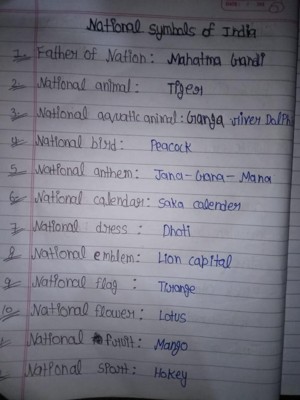 National Symbols of India
1. Father of Nation: Mahatma Gandi
2. National animal: Tiger
3. National aquatic animal: Ganga river Dolph
4. National bird: Peacock
5. National anthem: Jana-Gana-Mana
6. National calendar: Saka calender
7. National dress: Dhoti
8. National emblem: Lion capital
9. National flag: Tirange
10. National flower: Lotus
National fruit: Mango
National sport: Hokey